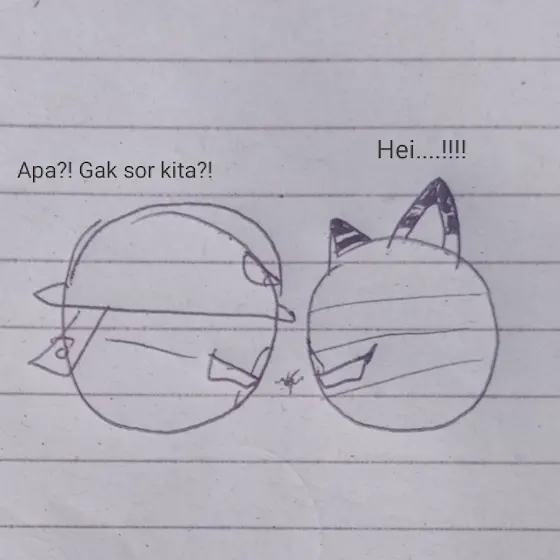 Apa?! Gak sor kita?!
Hei....!!!!